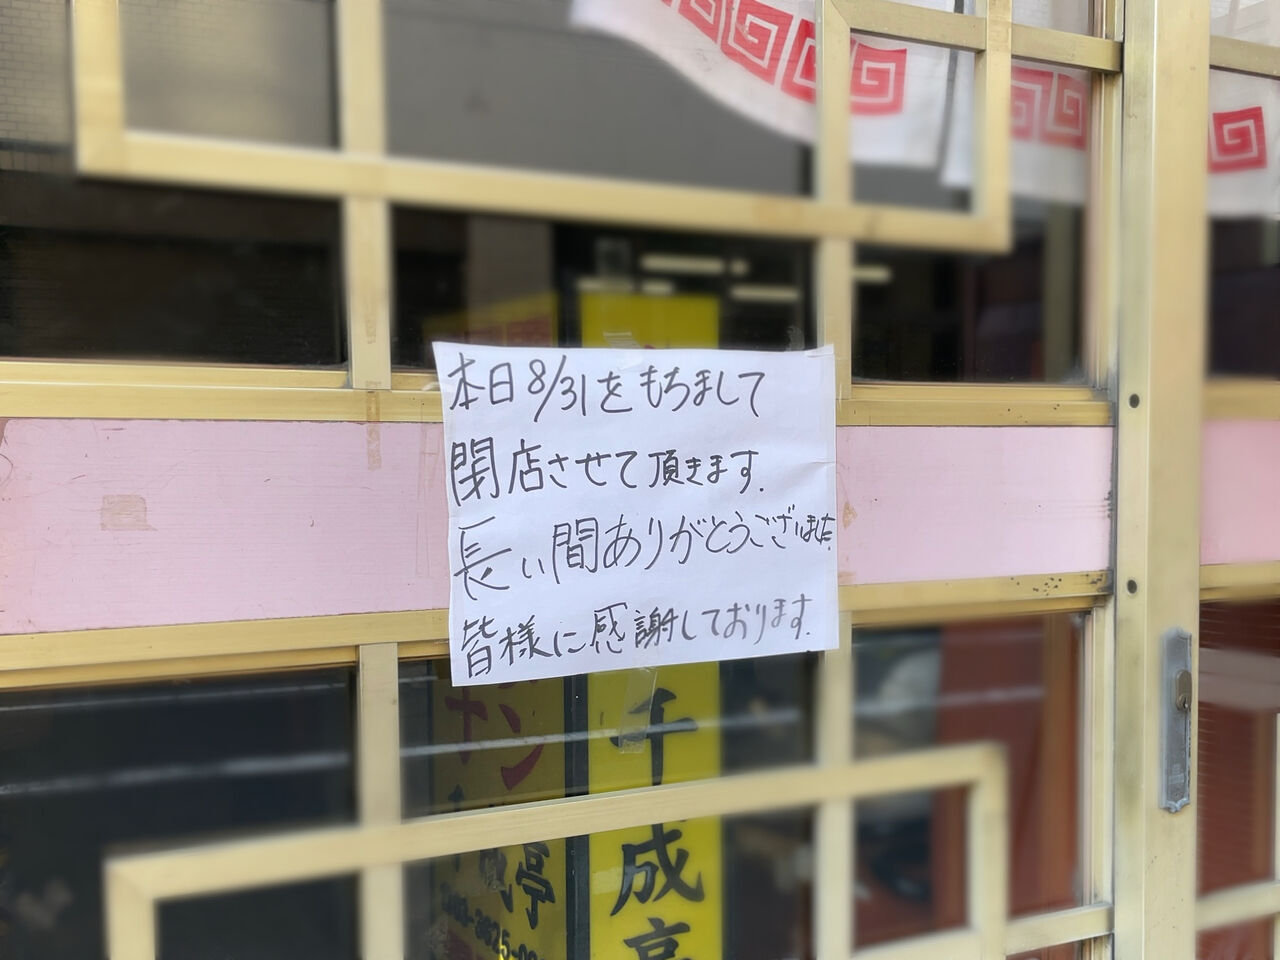 本日8/31をもちまして
閉店させて頂きます.
長い間ありがとうございました.
皆様に感謝しております.
千成亭